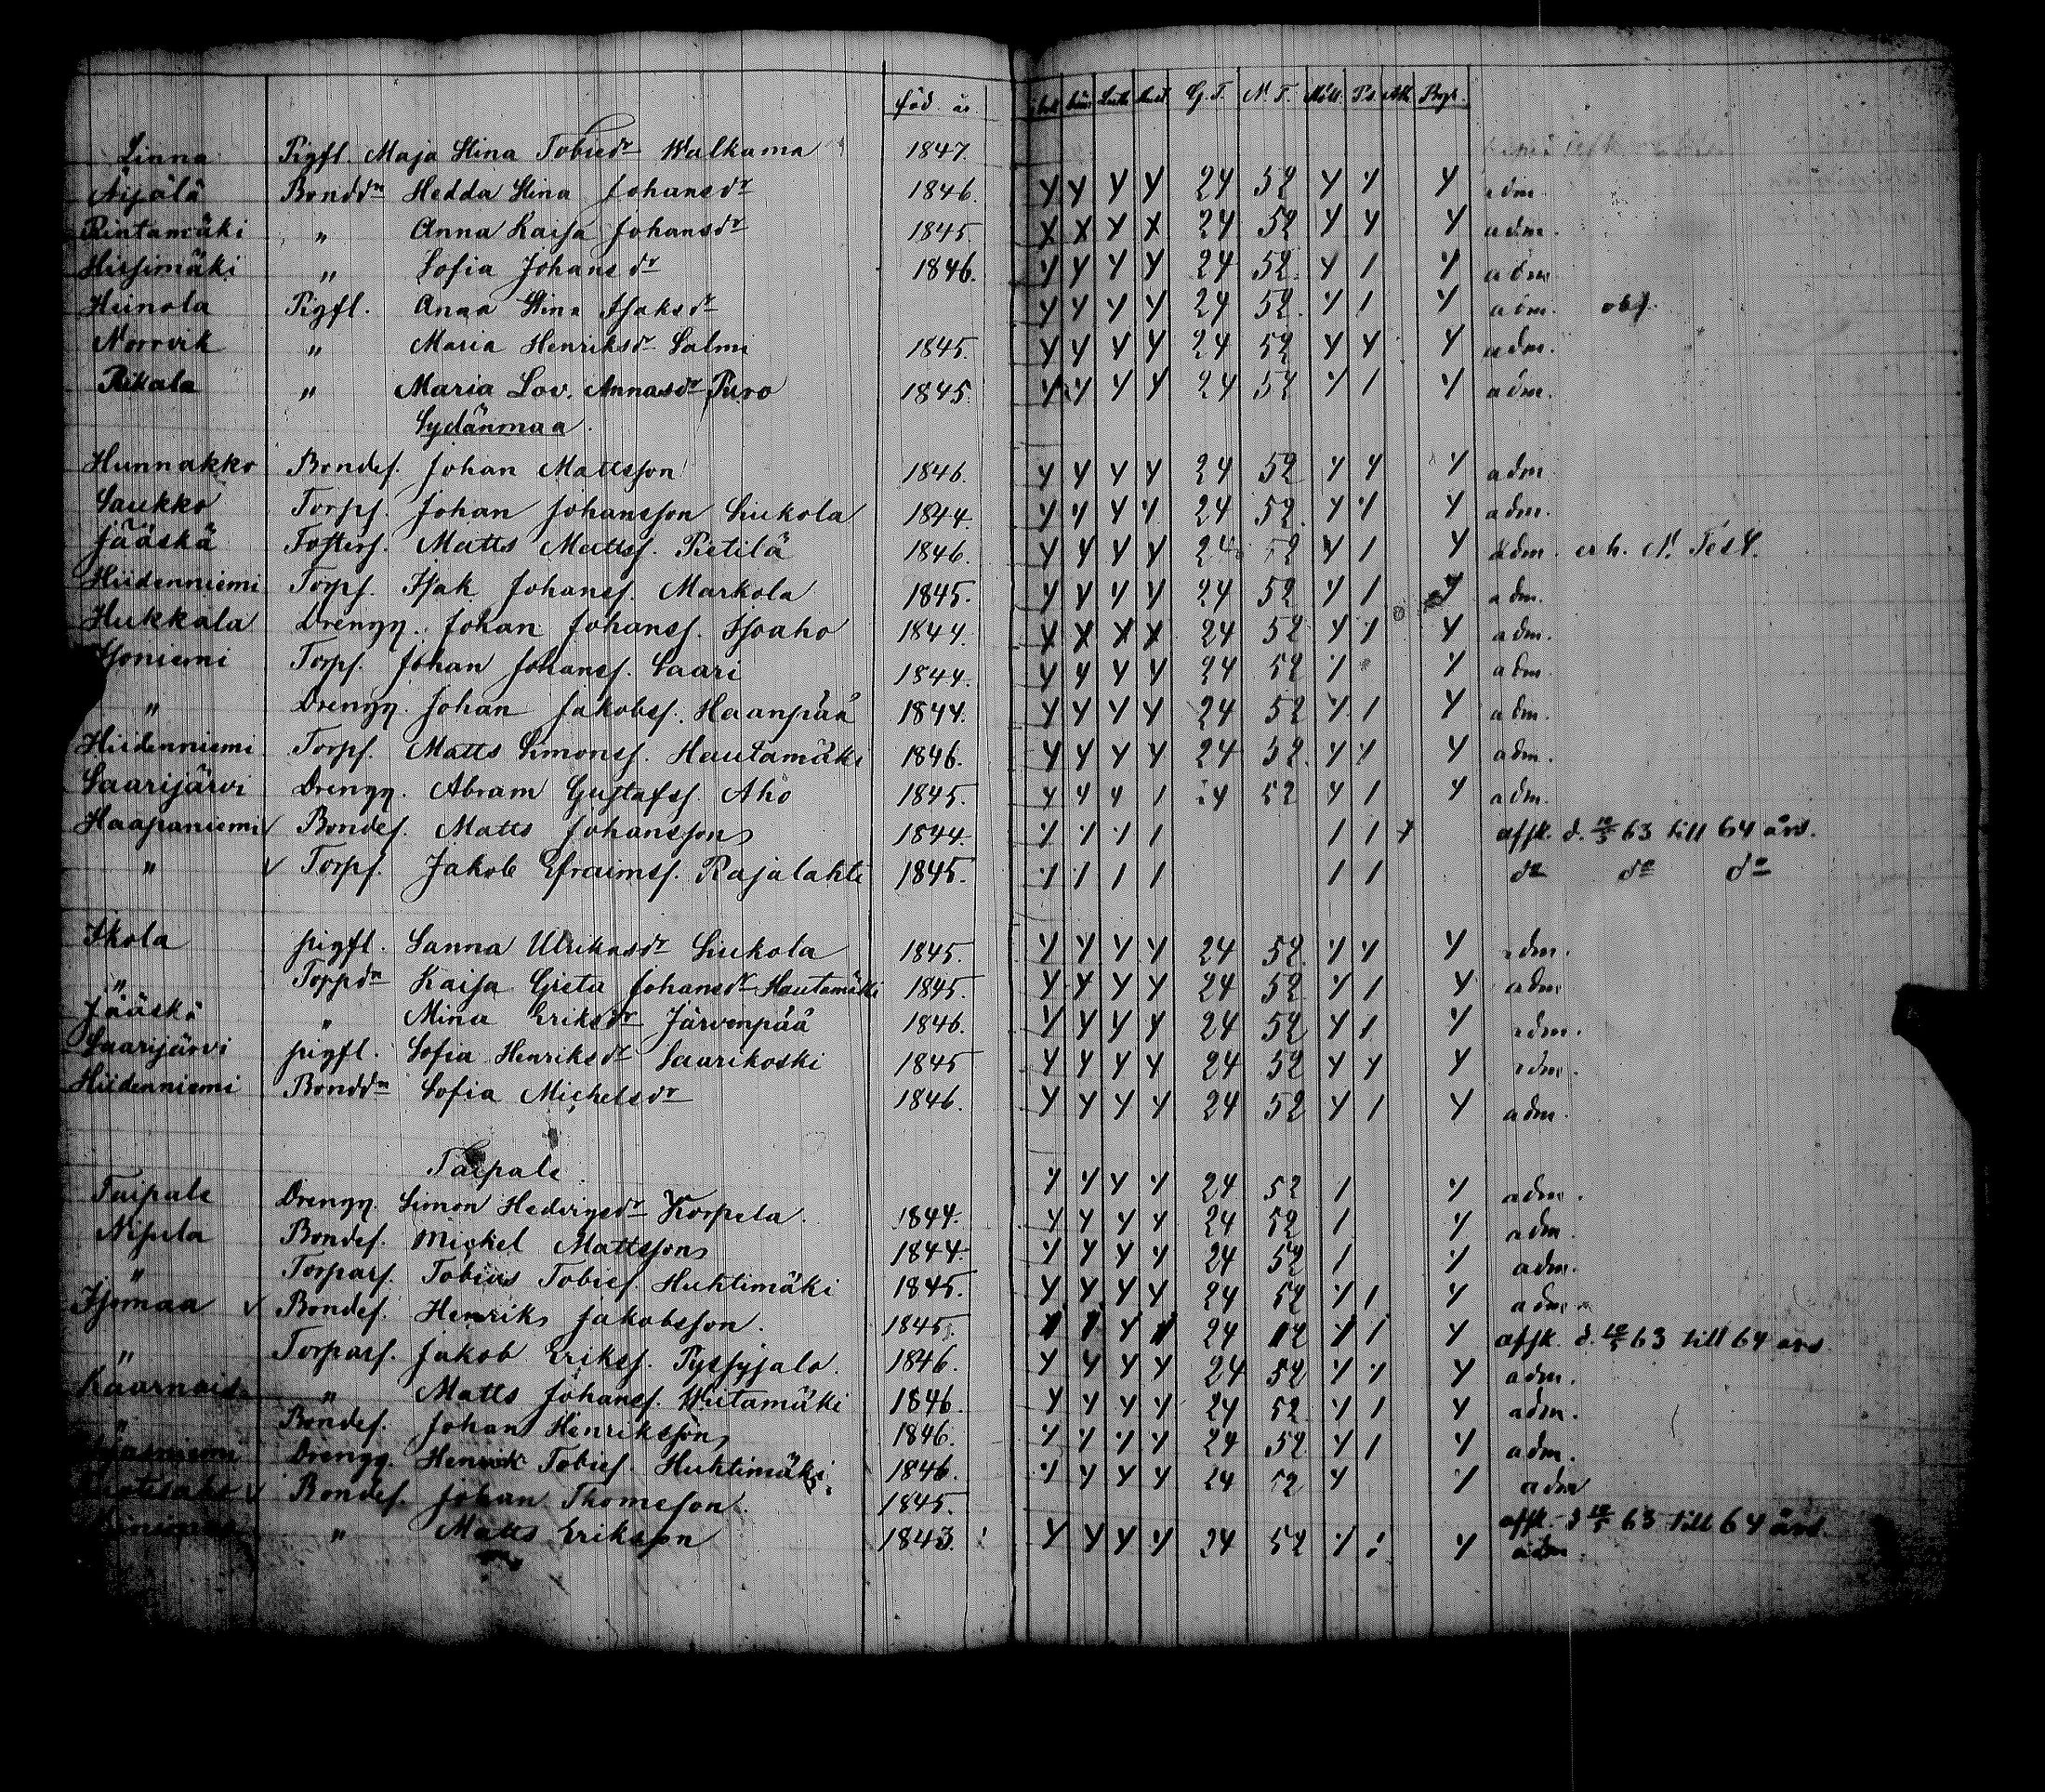 föd. år. G. T. N. T. Ps.
Linna Pigfl. Maja Stina Tobiedr Walkama 1847.
Äijälä Bonddn Hedda Stina Johansdr 1846. Y Y Y Y 24 52 Y Y Y adm.
Rintamäki " Anna Kajsa Johansdr 1845. X X Y X 24 52 Y Y Y adm.
Hirsimäki " Sofia Johansdr 1846. Y Y Y Y 24 52. Y 1 Y adm
Heinola Pigfl. Anna Stina Isaksdr Y Y Y Y 24 52. Y 1 Y adm. obs.
Norrvik " Maria Henriksdr Salmi 1845. Y Y Y Y 24 52 Y Y Y adm.
Rikala " Maria Lov. Annasdr Puro 1845. Y Y Y Y 24 52 Y 1 Y adm.
Sydänmaa.
Hunnakko Bondes. Johan Mattsson 1846. Y Y Y Y 24 52 Y Y Y adm
Saukko Torps. Johan Johansson Liukola 1844. Y Y Y Y 24 52. Y Y Y adm.
Jääskä Fosters. Matts Mattss. Pietilä 1846. Y Y Y Y 24 52 Y 1 Y adm. erh. N. Test.
Hiidenniemi Torps. Isak Johanss. Markola 1845. Y Y Y Y 24 52 Y 1 Y adm.
Hukkala Drengg. Johan Johanss. Isoaho 1844. X X X X 24 52 Y Y Y adm.
Isoniemi Torps. Johan Johanss. Saari 1844. Y Y Y Y 24 52 Y Y adm.
" Drengg. Johan Jakobss. Haanpää 1844. Y Y Y Y 24 52 Y 1 Y adm.
Hiidenniemi Torps. Matts Simonss. Hautamäki 1846. Y Y Y Y 24 52. Y Y Y adm.
Saarijärvi Drengg. Abram Gustafss. Aho 1845. Y Y Y 1 24 52 Y 1 Y adm.
Haapaniemi √ Bondes. Matts Johansson 1844. Y 1 Y 1 1 1 Y affk. d. 10/5 63 till 64 års.
" √ Torps. Jakob Efraimss. Rajalahti 1845. Y 1 1 1 1 1 do do do
Ikola pigfl. Sanna Ulrikasdr Liukola 1845. Y Y Y Y 24 52. Y Y Y adm.
" Torpdn Kajsa Greta Johansdr Hautamäki 1845. Y Y Y Y 24 52 Y 1 Y adm
Jääskä " Mina Eriksdr Järvenpää 1846. Y Y Y Y 24 52 Y 1 Y adm.
Saarijärvi pigfl. Sofia Henriksdr Saarikoski 1845 Y Y Y Y 24 52 Y Y Y adm.
Hiidenniemi Bonddn Sofia Michelsdr 1846. Y Y Y Y 24 52 Y 1 Y adm.
Taipale
Taipale Drengg. Simon Hedvigsdr Korpela. 1844. Y Y Y Y 24 52 1 Y adm.
Nisula Bondes. Mickel Mattsson 1844. Y Y Y Y 24 52 1 Y adm.
" Torpars. Tobias Tobies. Huhtimäki 1845. Y Y Y Y 24 52 1 Y adm.
Isomaa √ Bondes. Henrik Jakobsson. 1845. Y Y Y Y 24 52 Y 1 Y adm
" Torpars. Jakob Erikss. Pyssyjalo. 1846. 24 12 Y 1 Y affk. d. 10/5 63 till 64 års
" Matts Johanss. Wiitamäki 1846. Y Y Y Y 24 52 Y Y Y adm.
" Bondes. Johan Henriksson 1846. Y Y Y Y 24 52 Y 1 Y adm.
Drengg. Henrik Tobies. Huhtimäki. 1846. Y Y Y Y 24 52 Y 1 Y adm.
√ Bondes. Johan Thomsson. 1845. Y Y Y Y 24 52 Y Y adm
" Matts Eriksson 1843. affk. d 10/5 63 till 64 års.
Y Y Y Y 24 52 Y 1 Y adm.